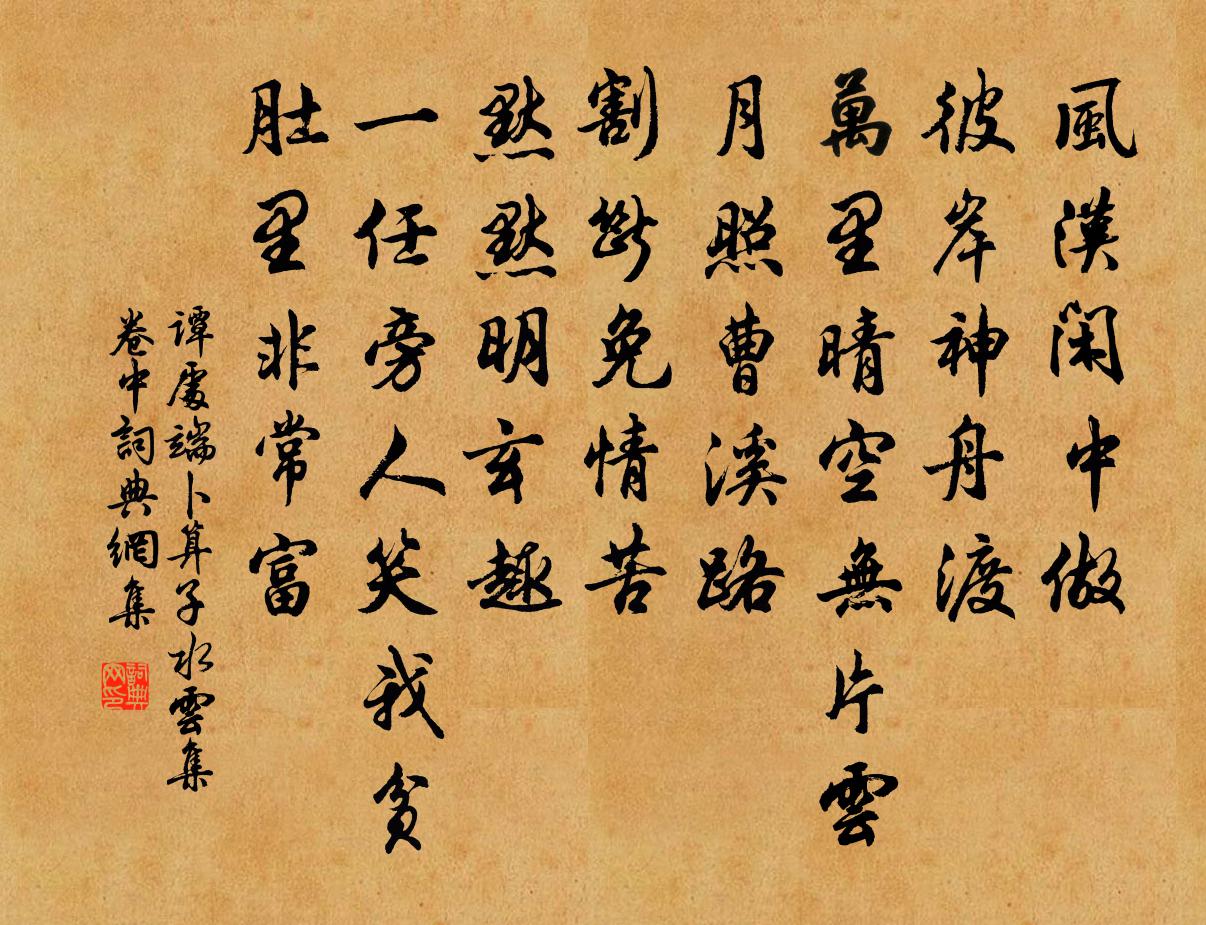 風漢閑中做
彼岸神舟渡
萬里晴空無片雲
月照曹溪路
割斷免情苦
默默明玄趣
一任旁人笑我貧
肚里非常富
譚處端卜算子水雲集
卷中詞典網集
詞典网印